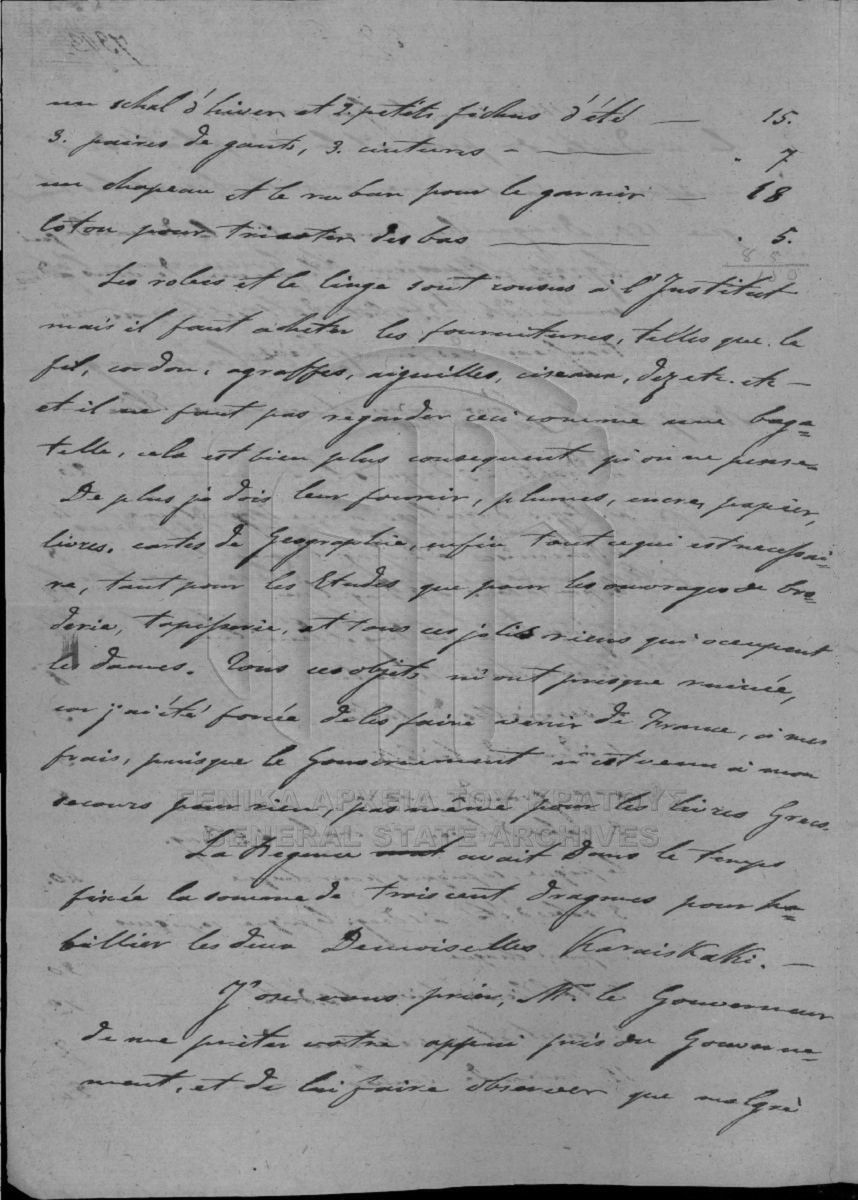 un schal d'hiver et 2. petits fichus d'été — 15.
3. paires de gants, 3. ceintures - — " 7
un chapeau et le ruban pour le garnir — 18
Coton pour tricoter des bas — " 5.
Les robes et le linge sont cousus à l'Institut
mais il faut acheter les fournitures, telles que le
fil, cordon, agraffes, aiguilles, ciseaux, dez etc. etc —
et il ne faut pas regarder ceci comme une baga=
telle, cela est bien plus consequent qu'on ne pense—
De plus je dois leur fournir, plumes, encre, papier,
livres, cartes de Geographie, enfin tout ce qui est necessai=
re, tant pour les Etudes que pour les ouvrages de bro=
derie, tapisserie, et tous ces jolis riens qui occupent
les dames. Tous ces objets m'ont presque ruinée,
car j'ai été forcée de les faire venir de France, à mes
frais, puisque le Gouvernement n'est venu à mon
secours pour rien, pas même pour les livres Grecs.
ΓΕΝΙΚΑ ΑΡΧΕΙΑ ΤΟΥ ΚΡΑΤΟΥΣ
GENERAL STATE ARCHIVES
La Regence avait dans le temps
fixée la somme de trois cent dragmes pour ha=
billier les deux Demoiselles Karaiskaki. —
J'ose vous prier, Mr. le Gouverneur
de me prêter votre appui près du Gouverne=
ment, et de lui faire observer que malgré